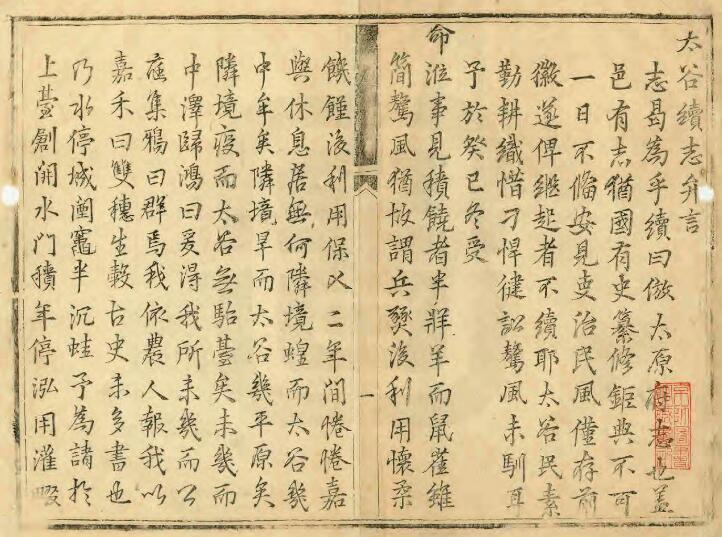 太谷續志弁言
志曷為乎續曰倣太原府志也蓋
邑有志猶國有史纂修鉅典不可
一日不備安見吏治民風僅存前
徽遂俾繼起者不續耶太谷民素
勤耕織惜刁悍健訟驁風未馴耳
予於癸巳冬受
命涖事見積饒者半牂羊而鼠雀雖
簡驁風猶故謂兵燹後利用懷柔
一
饑饉後利用保乂二年間惓惓嘉
與休息居無何隣境蝗而太谷幾
中牟矣隣境旱而太谷幾平原矣
隣境疫而太谷無駘薹矣未幾而
中澤歸鴻曰爰得我所未幾而公
庭集鴉曰群焉我依農人報我以
嘉禾曰雙穗生穀古史未多書也
乃水停城闉竈半沉蛙予為請於
上臺創開水門積年停泓用灌畷